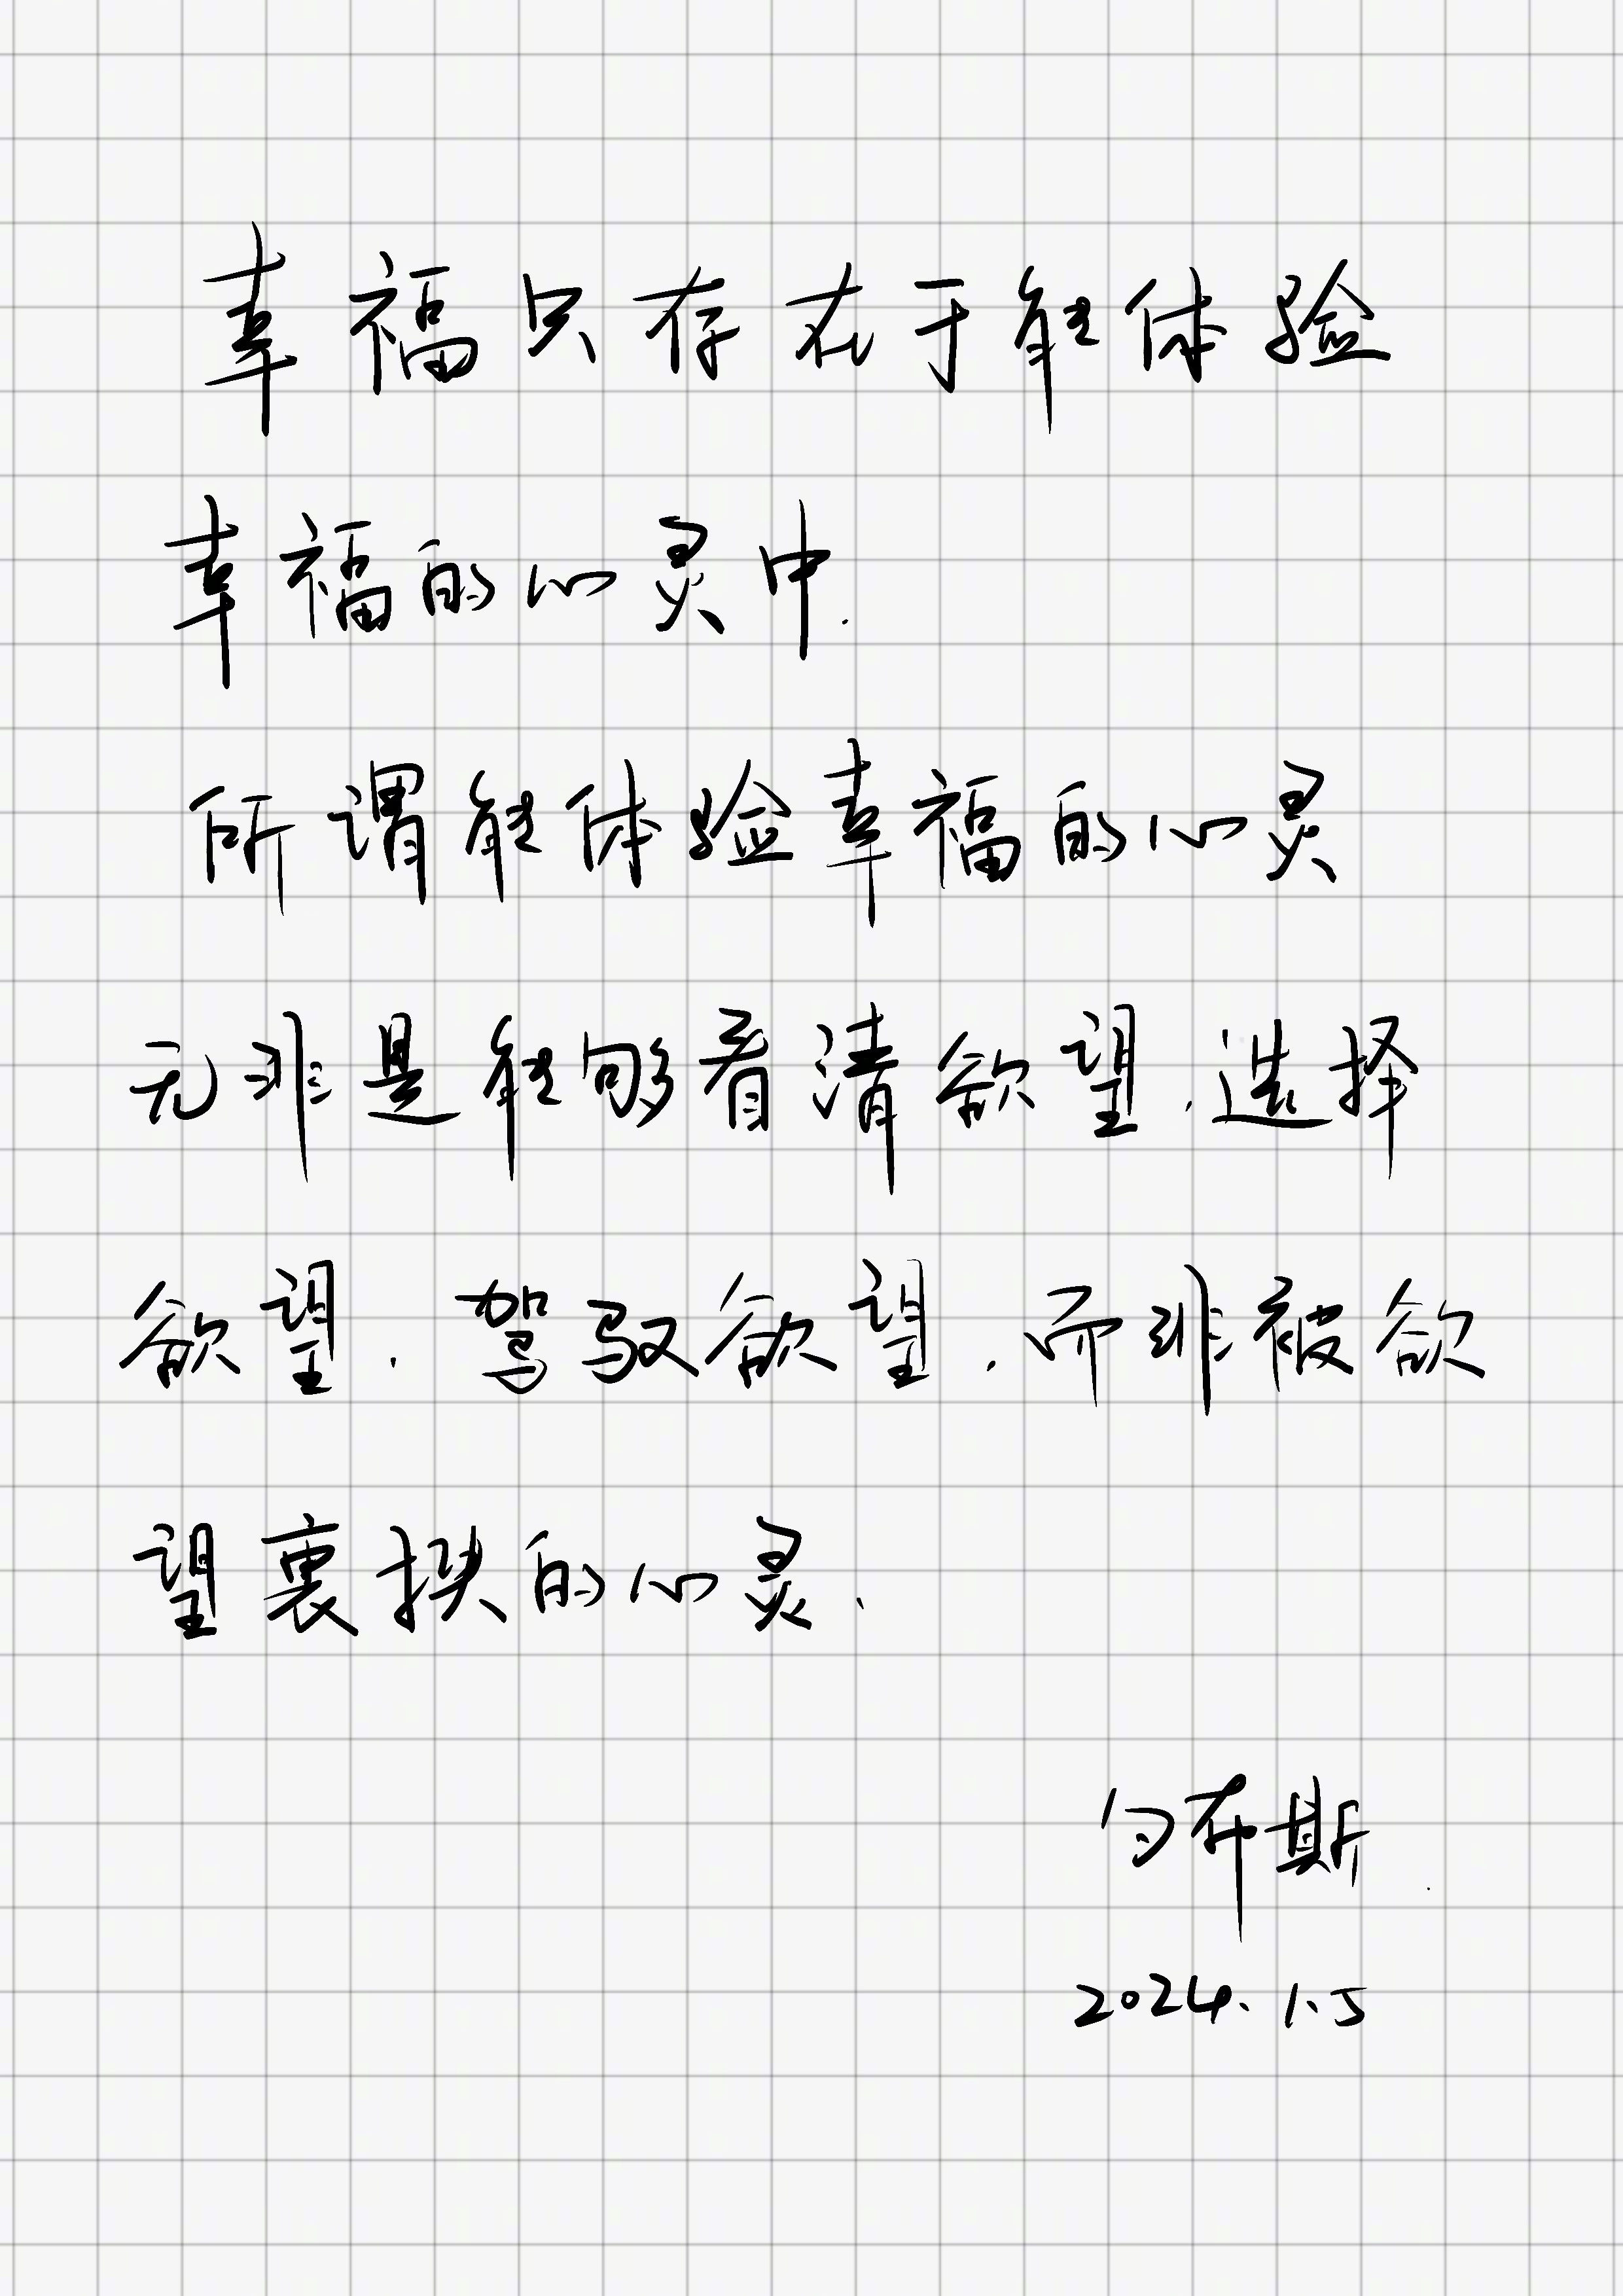 幸福只存在于能体验
幸福的心灵中.
所谓能体验幸福的心灵
无非是能够看清欲望,选择
欲望,驾驭欲望,而非被欲
望裹挟的心灵.
勻布斯
2024.1.5